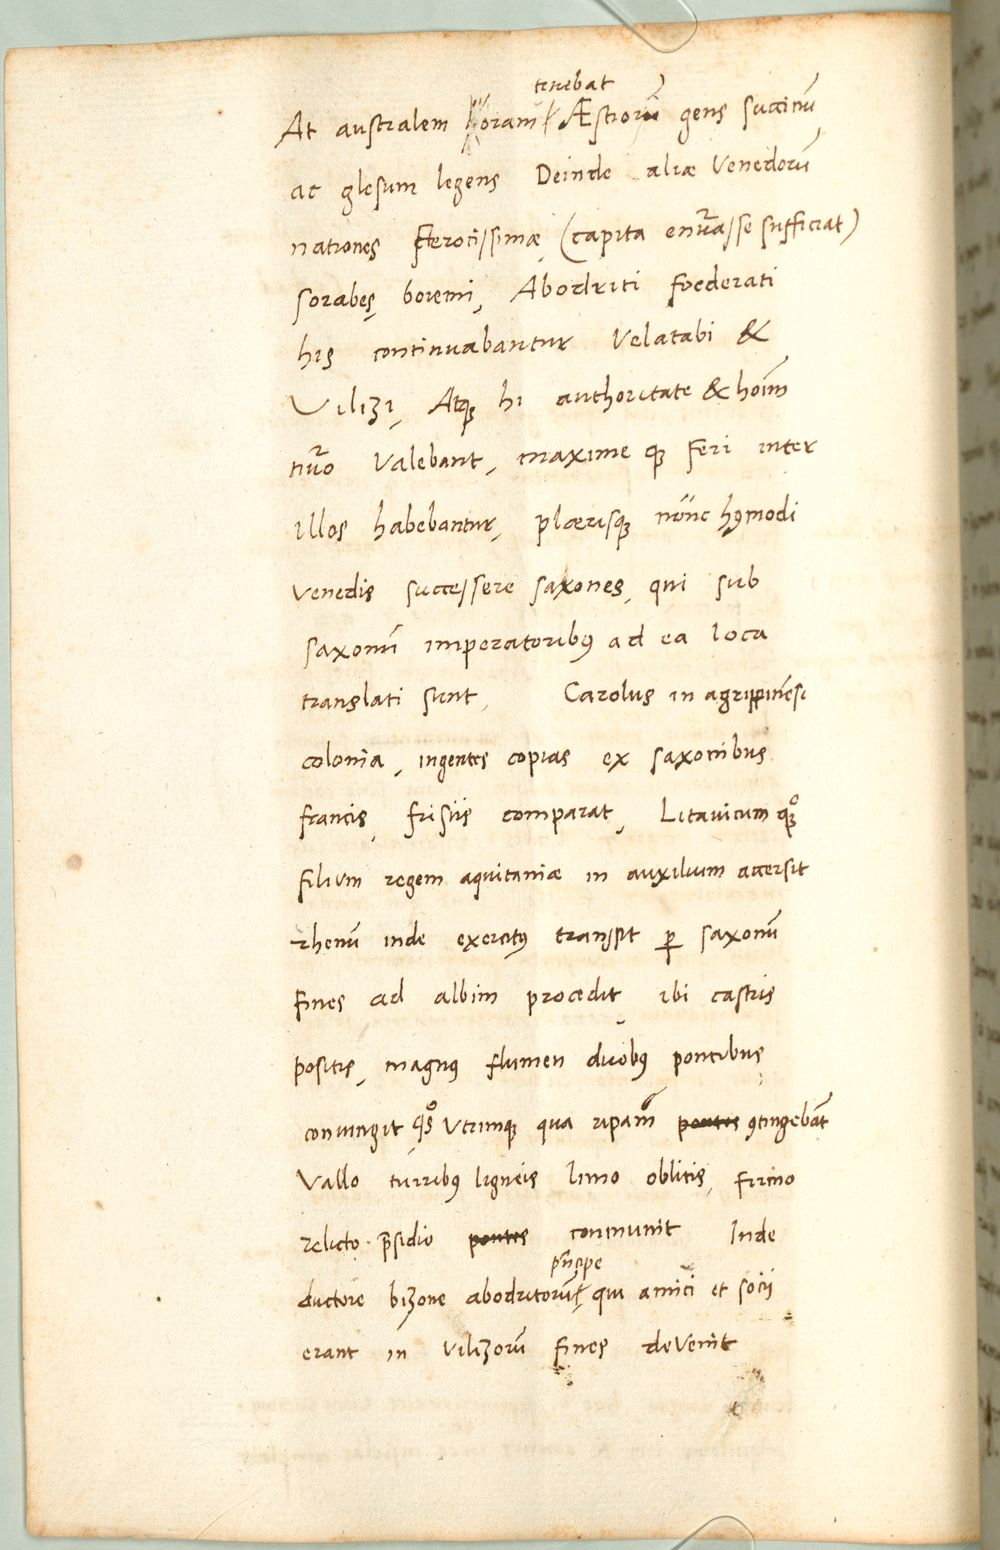 tenebat
At australem oram Æstiorū gens succinū
ac glesum legens Deinde aliæ Venedorū
nationes Ferocissimæ (capita enūasse sufficiat)
sorabes, boiemi, Abodriti foederati
his continuabantur Velatabi &
Vilizi, Atq; hi authoritate & hoim̄
nūo Valebant, maxime q; feri inter
illos habebantur, plærisq; nūnc hꝰmodi
venedis successere saxones, qui sub
saxonū imperatoribꝰ ad ea loca
translati sunt, Carolus in agrippinēsi
colonia, ingentes copias ex saxonibus
francis, frisiis comparat, Litauicum qꝫ
filium regem aquitaniæ in auxilium accersit
rhenū inde exercitꝰ transsit ꝑ saxonū
fines ad albim procedit ibi castris
positis, magnꝰ flumen duobꝰ pontibus
conuingit q̊s Utrimq; qua ripam̄ pontes ꝯtingebāt
Vallo turribꝰ ligneis limo oblitis, firmo
relicto p̄sidio pontes communit Inde
prīcipe
ductore bizone abodritorū qui amici et socij
erant in vilizorū fines deVenit